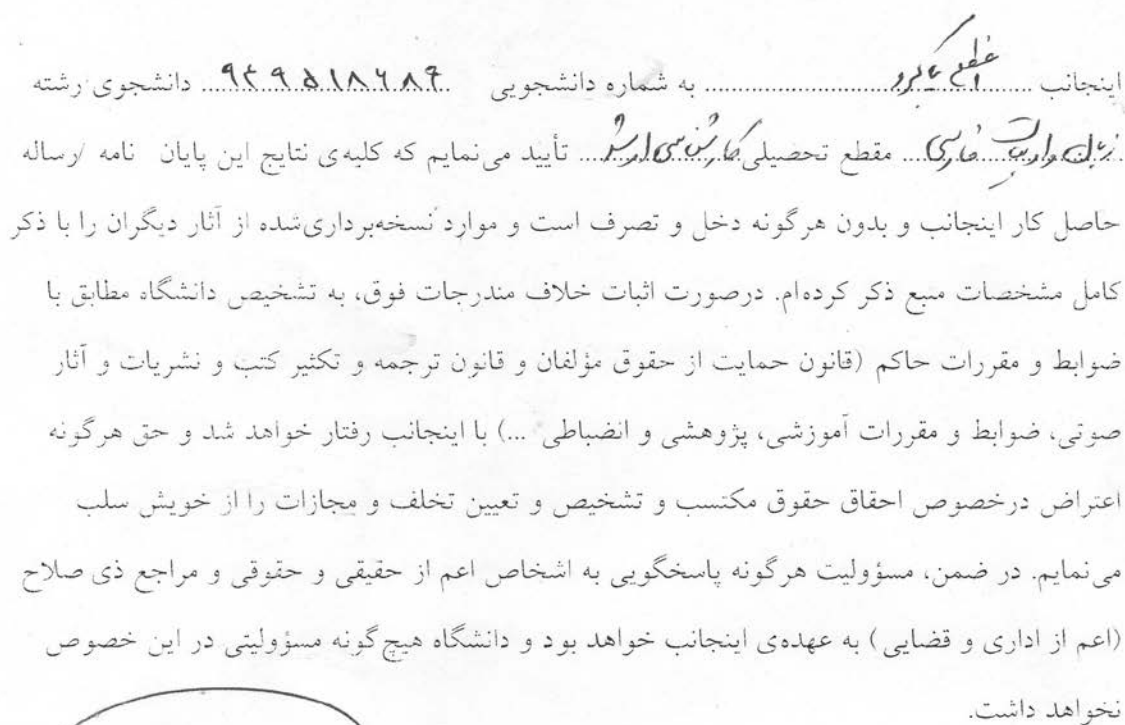 اینجانب ........................ به شماره دانشجویی ..۹۴۹۵۱۸۶۸۹.. دانشجوی رشته
زبان و ادبیات فارسی.... مقطع تحصیلی کارشناسی ارشد.... تأیید می‌نمایم که کلیه‌ی نتایج این پایان نامه /رساله
حاصل کار اینجانب و بدون هرگونه دخل و تصرف است و موارد نسخه‌برداری‌شده از آثار دیگران را با ذکر
کامل مشخصات منبع ذکر کرده‌ام. درصورت اثبات خلاف مندرجات فوق، به تشخیص دانشگاه مطابق با
ضوابط و مقررات حاکم (قانون حمایت از حقوق مؤلفان و قانون ترجمه و تکثیر کتب و نشریات و آثار
صوتی، ضوابط و مقررات آموزشی، پژوهشی و انضباطی ...) با اینجانب رفتار خواهد شد و حق هرگونه
اعتراض درخصوص احقاق حقوق مکتسب و تشخیص و تعیین تخلف و مجازات را از خویش سلب
می‌نمایم. در ضمن، مسؤولیت هرگونه پاسخگویی به اشخاص اعم از حقیقی و حقوقی و مراجع ذی صلاح
(اعم از اداری و قضایی) به عهده‌ی اینجانب خواهد بود و دانشگاه هیچ‌گونه مسؤولیتی در این خصوص
نخواهد داشت.